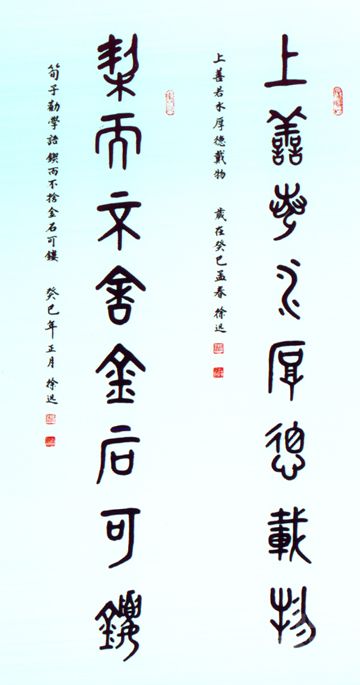 上善若水厚德載物
上善若水厚德戴物 歲在癸巳孟春 徐
栔而不舍金石可鏤
荀子勸學語 鍥而不捨金石可鏤 癸巳年正月 徐